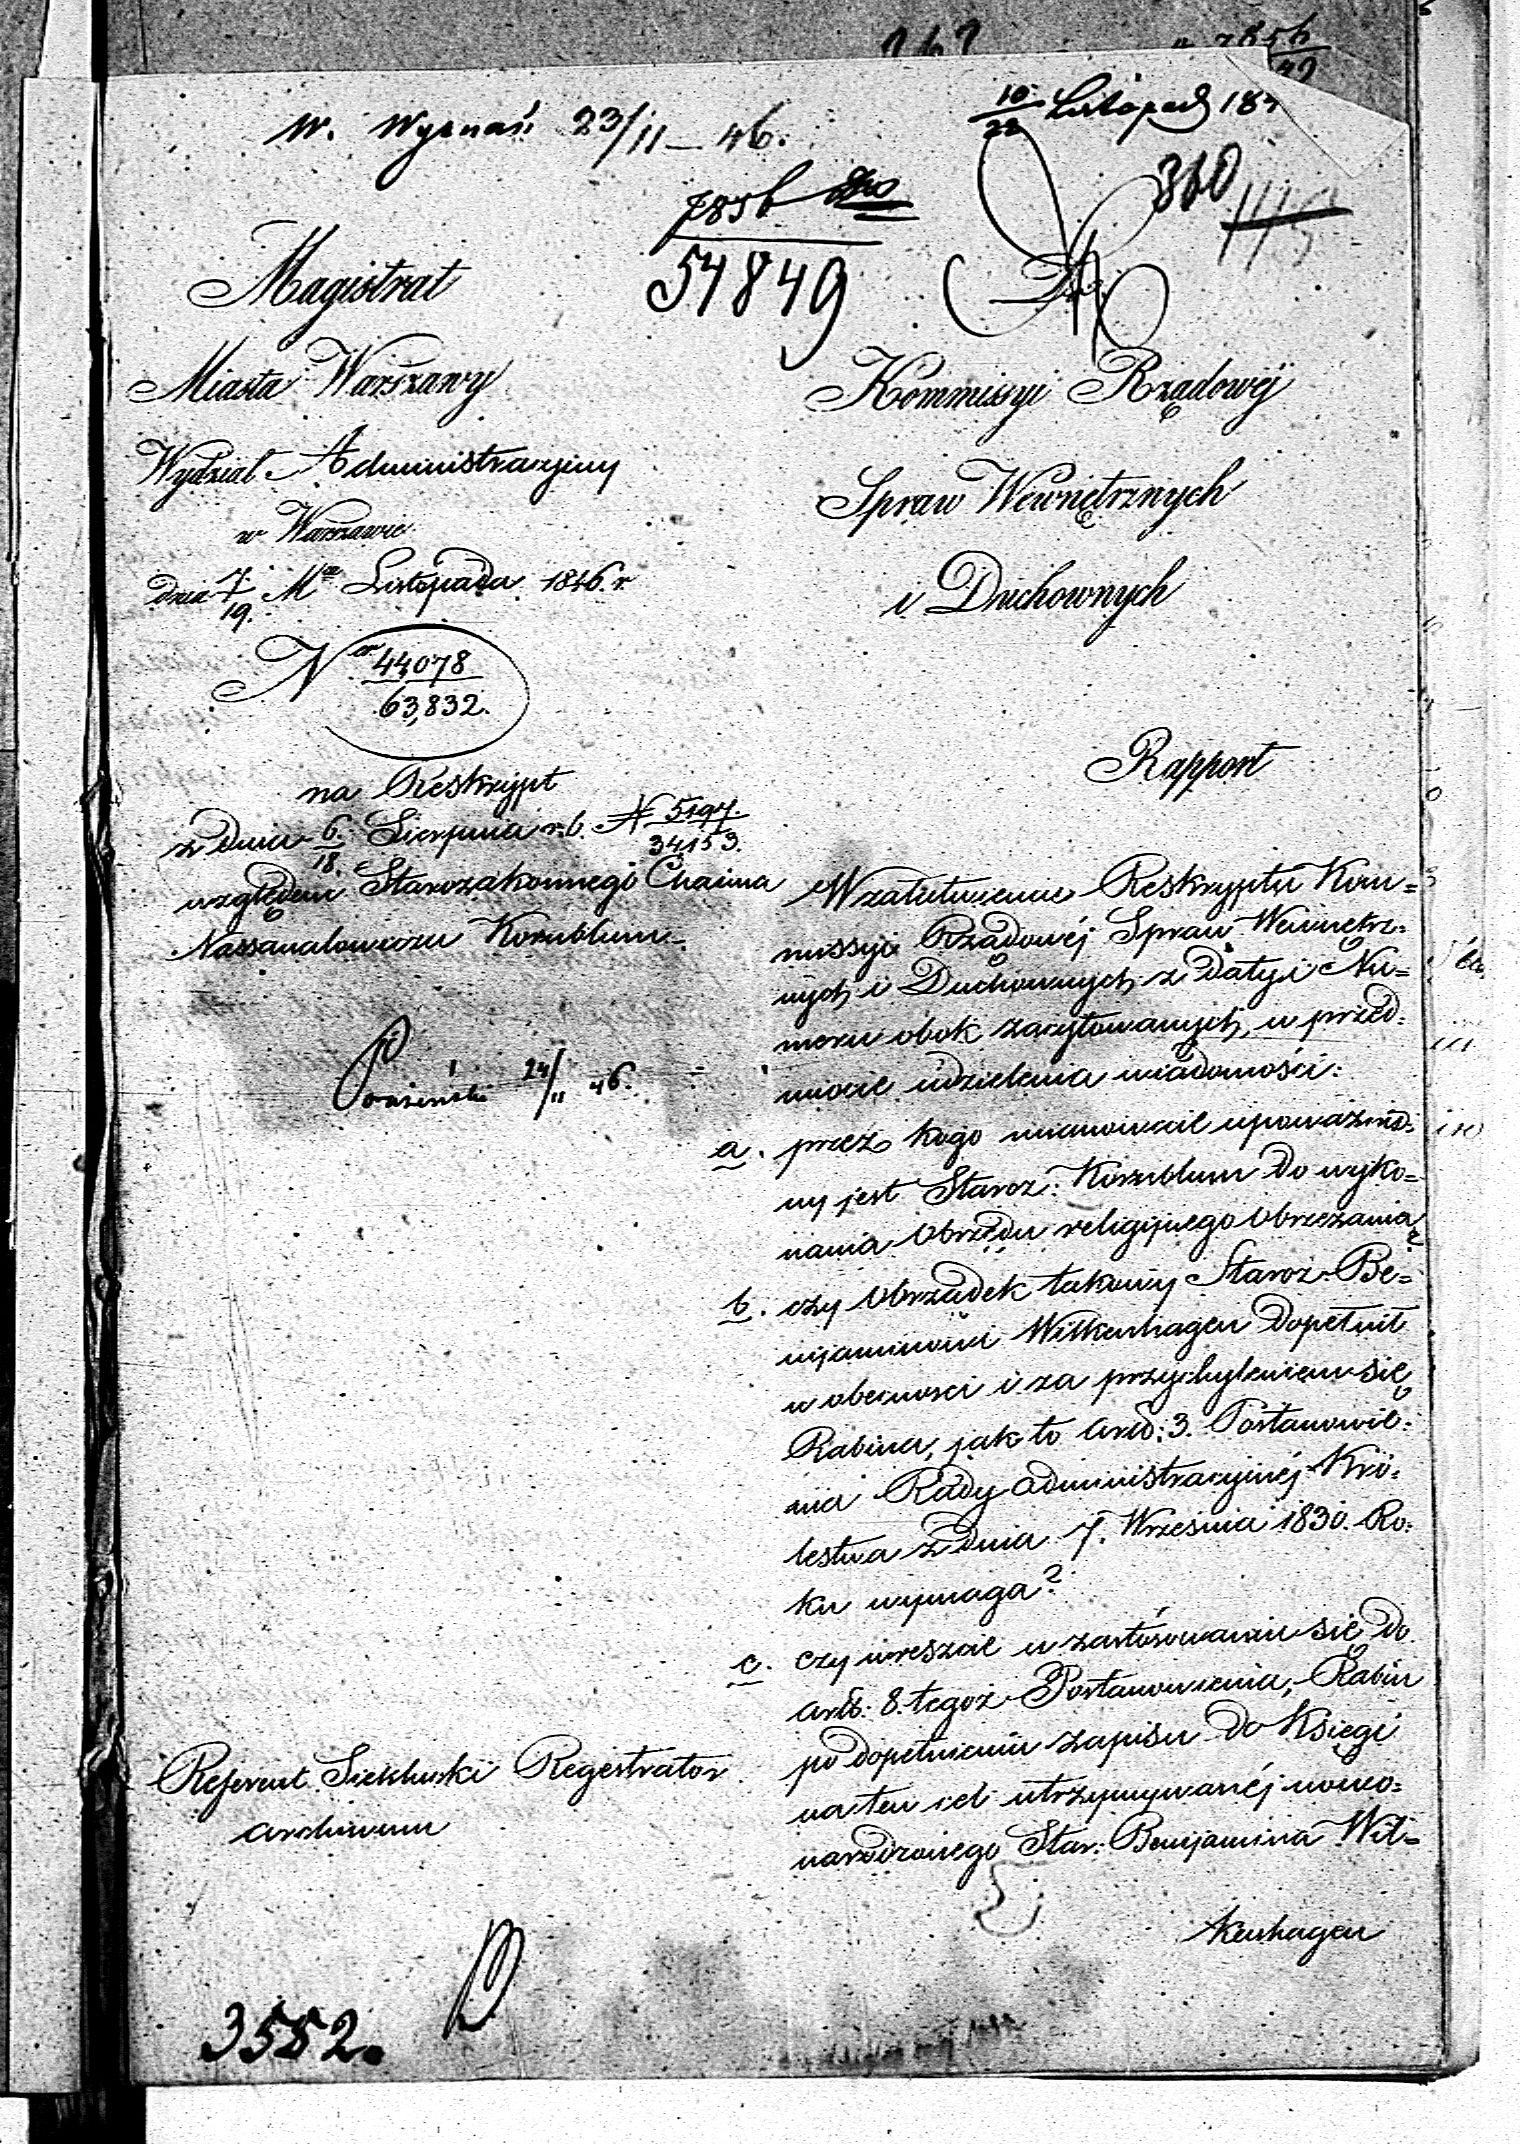 W. Wyznań 23/11 – 46.
10/22 Listopad 184
360
7856
54849
Magistrat
Miasta Warszawy
Wydział Administracyjny
w Warszawie
dnia 7/19. Mca Listopada 1846. r
Ner 44078/63,832.
na Reskrypt
z dnia 6/18. Sierpnia r. b. N 5197./34153.
względem Starozakonnego Chaima
Nassanalowicza Kornblum.
24/11 46.
Do
Kommissyi Rządowéj
Spraw Wewnętrznych
i Duchownych
Rapport
W załatwieniu Reskryptu Kom=
missyi Rządowéj Spraw Wewnętrz=
nych i Duchownych z daty i Nu=
meru obok zacytowanych, w przed=
miocie udzielenia wiadomości:
a. przez kogo mianowicie upoważnio=
ny jest Staroz: Kornblum do wyko=
nania Obrzędu religijnego Obrzezania
b. czy Obrządek takowy Staroz: Be=
nijaminowi Wilkenhagen dopełnił
w obecności i za przychyleniem się
Rabina, jak to Artł: 3. Postanowie=
nia Rady Administracyjnéj Kró=
lestwa z dnia 7. Września 1830. Ro=
ku wymaga?
c. czy wreszcie w zastósowaniu się do
Artł: 8. tegoż Postanowienia, Rabin
po dopełnieniu zapisu do Księgi
na ten cel utrzymywanéj nowo=
narodzonego Star: Benijamina Wil=
kenhagen
Referent Sieklucki Regestrator
Archiwum
3552.